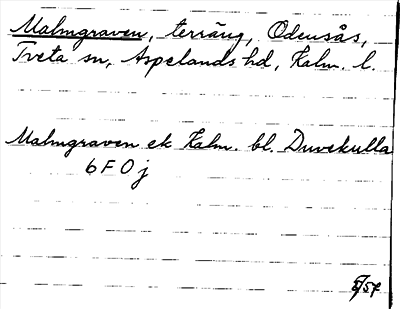 Malmgraven, terräng, Odensås,
Tveta sn, Aspelands hd, Kalm. l.
Malmgraven ek Kalm. bl. Duvekulla
6 F 0 j